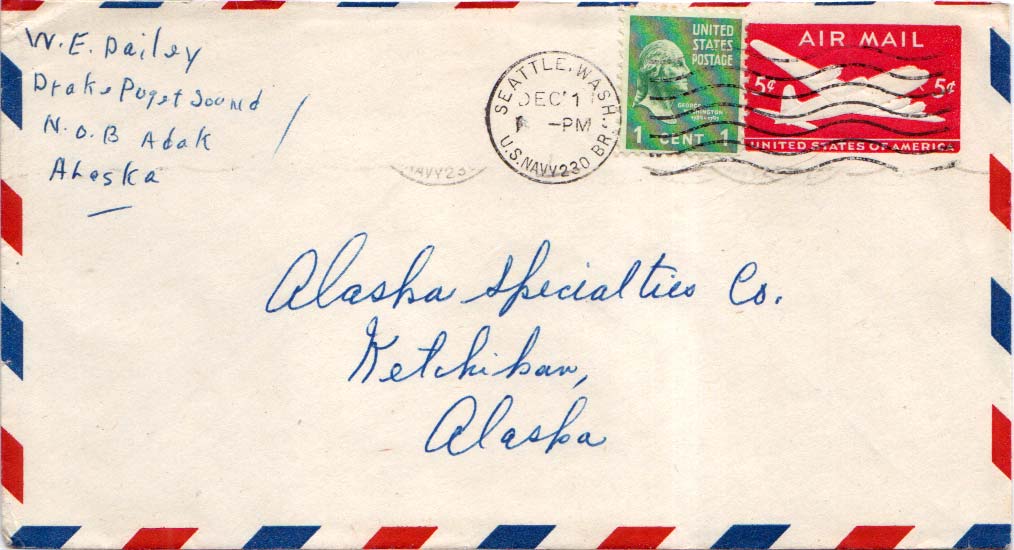 W. E. Dailey
Drake Puget Sound
N.O.B Adak
Alaska
SEATTLE, WASH.
DEC 1
-PM
U.S. NAVY 230 BR.
NAVY 23
UNITED
STATES
POSTAGE
GEORGE
WASHINGTON
1 CENT 1
AIR MAIL
5¢ 5¢
UNITED STATES OF AMERICA
Alaska Specialties Co.
Ketchikan,
Alaska